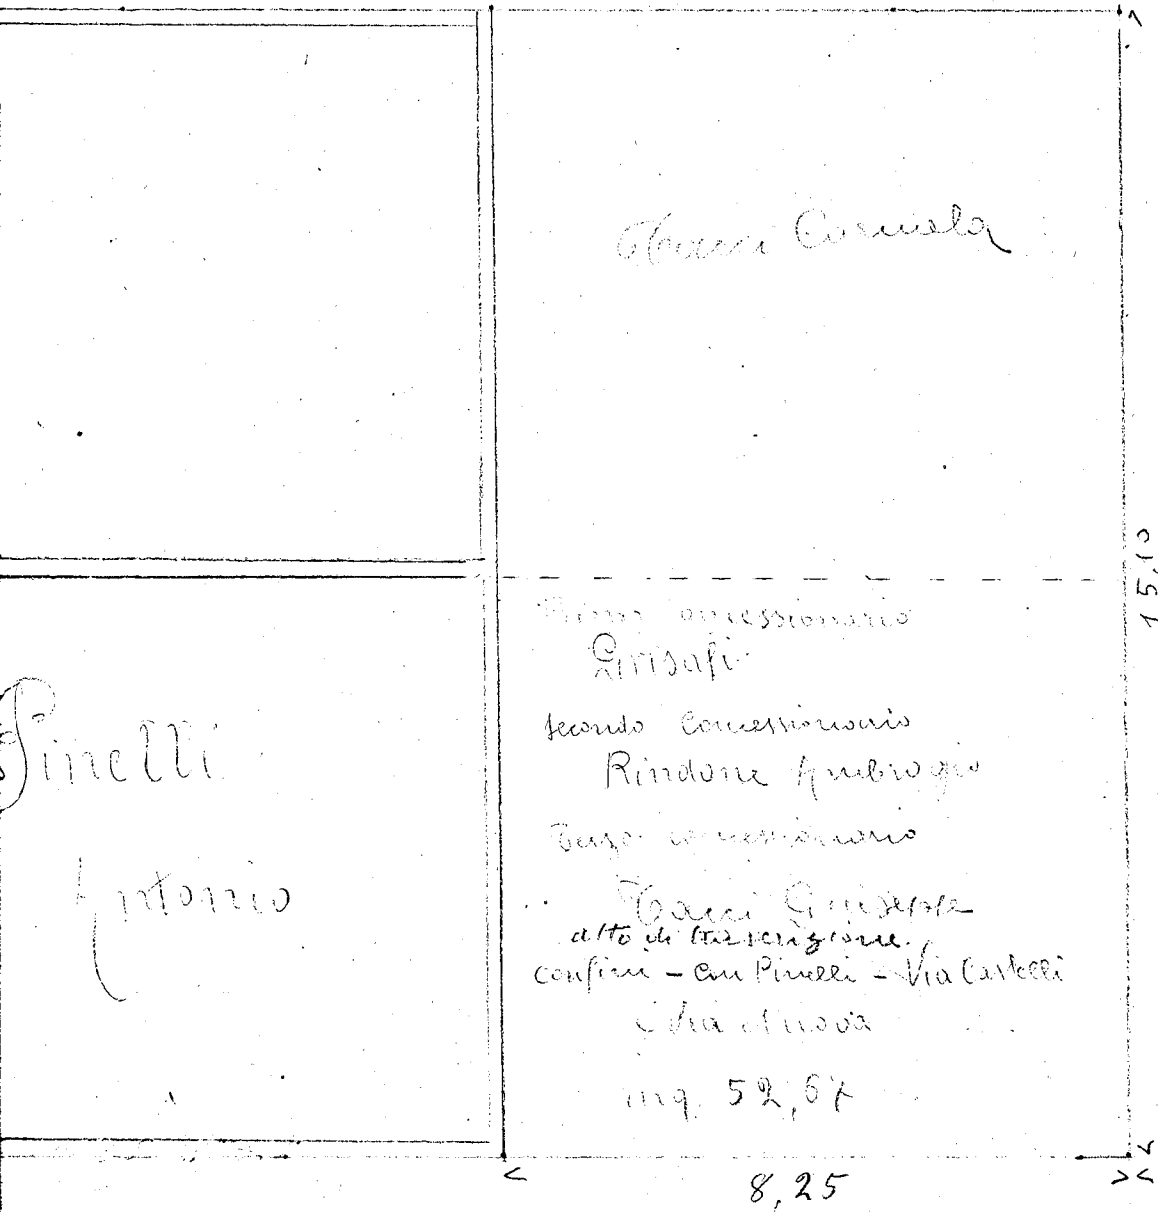 Tacci Carmela
15,10
Primo concessionario
Grisafi
Secondo Concessionario
Rindone Ambrogio
Terzo concessionario
Tacci Giuseppe
atto di trascrizione.
confini - con Pinelli - Via Castelli
e Via Nuova
mq. 52,67
8,25
Pinelli
Antonio